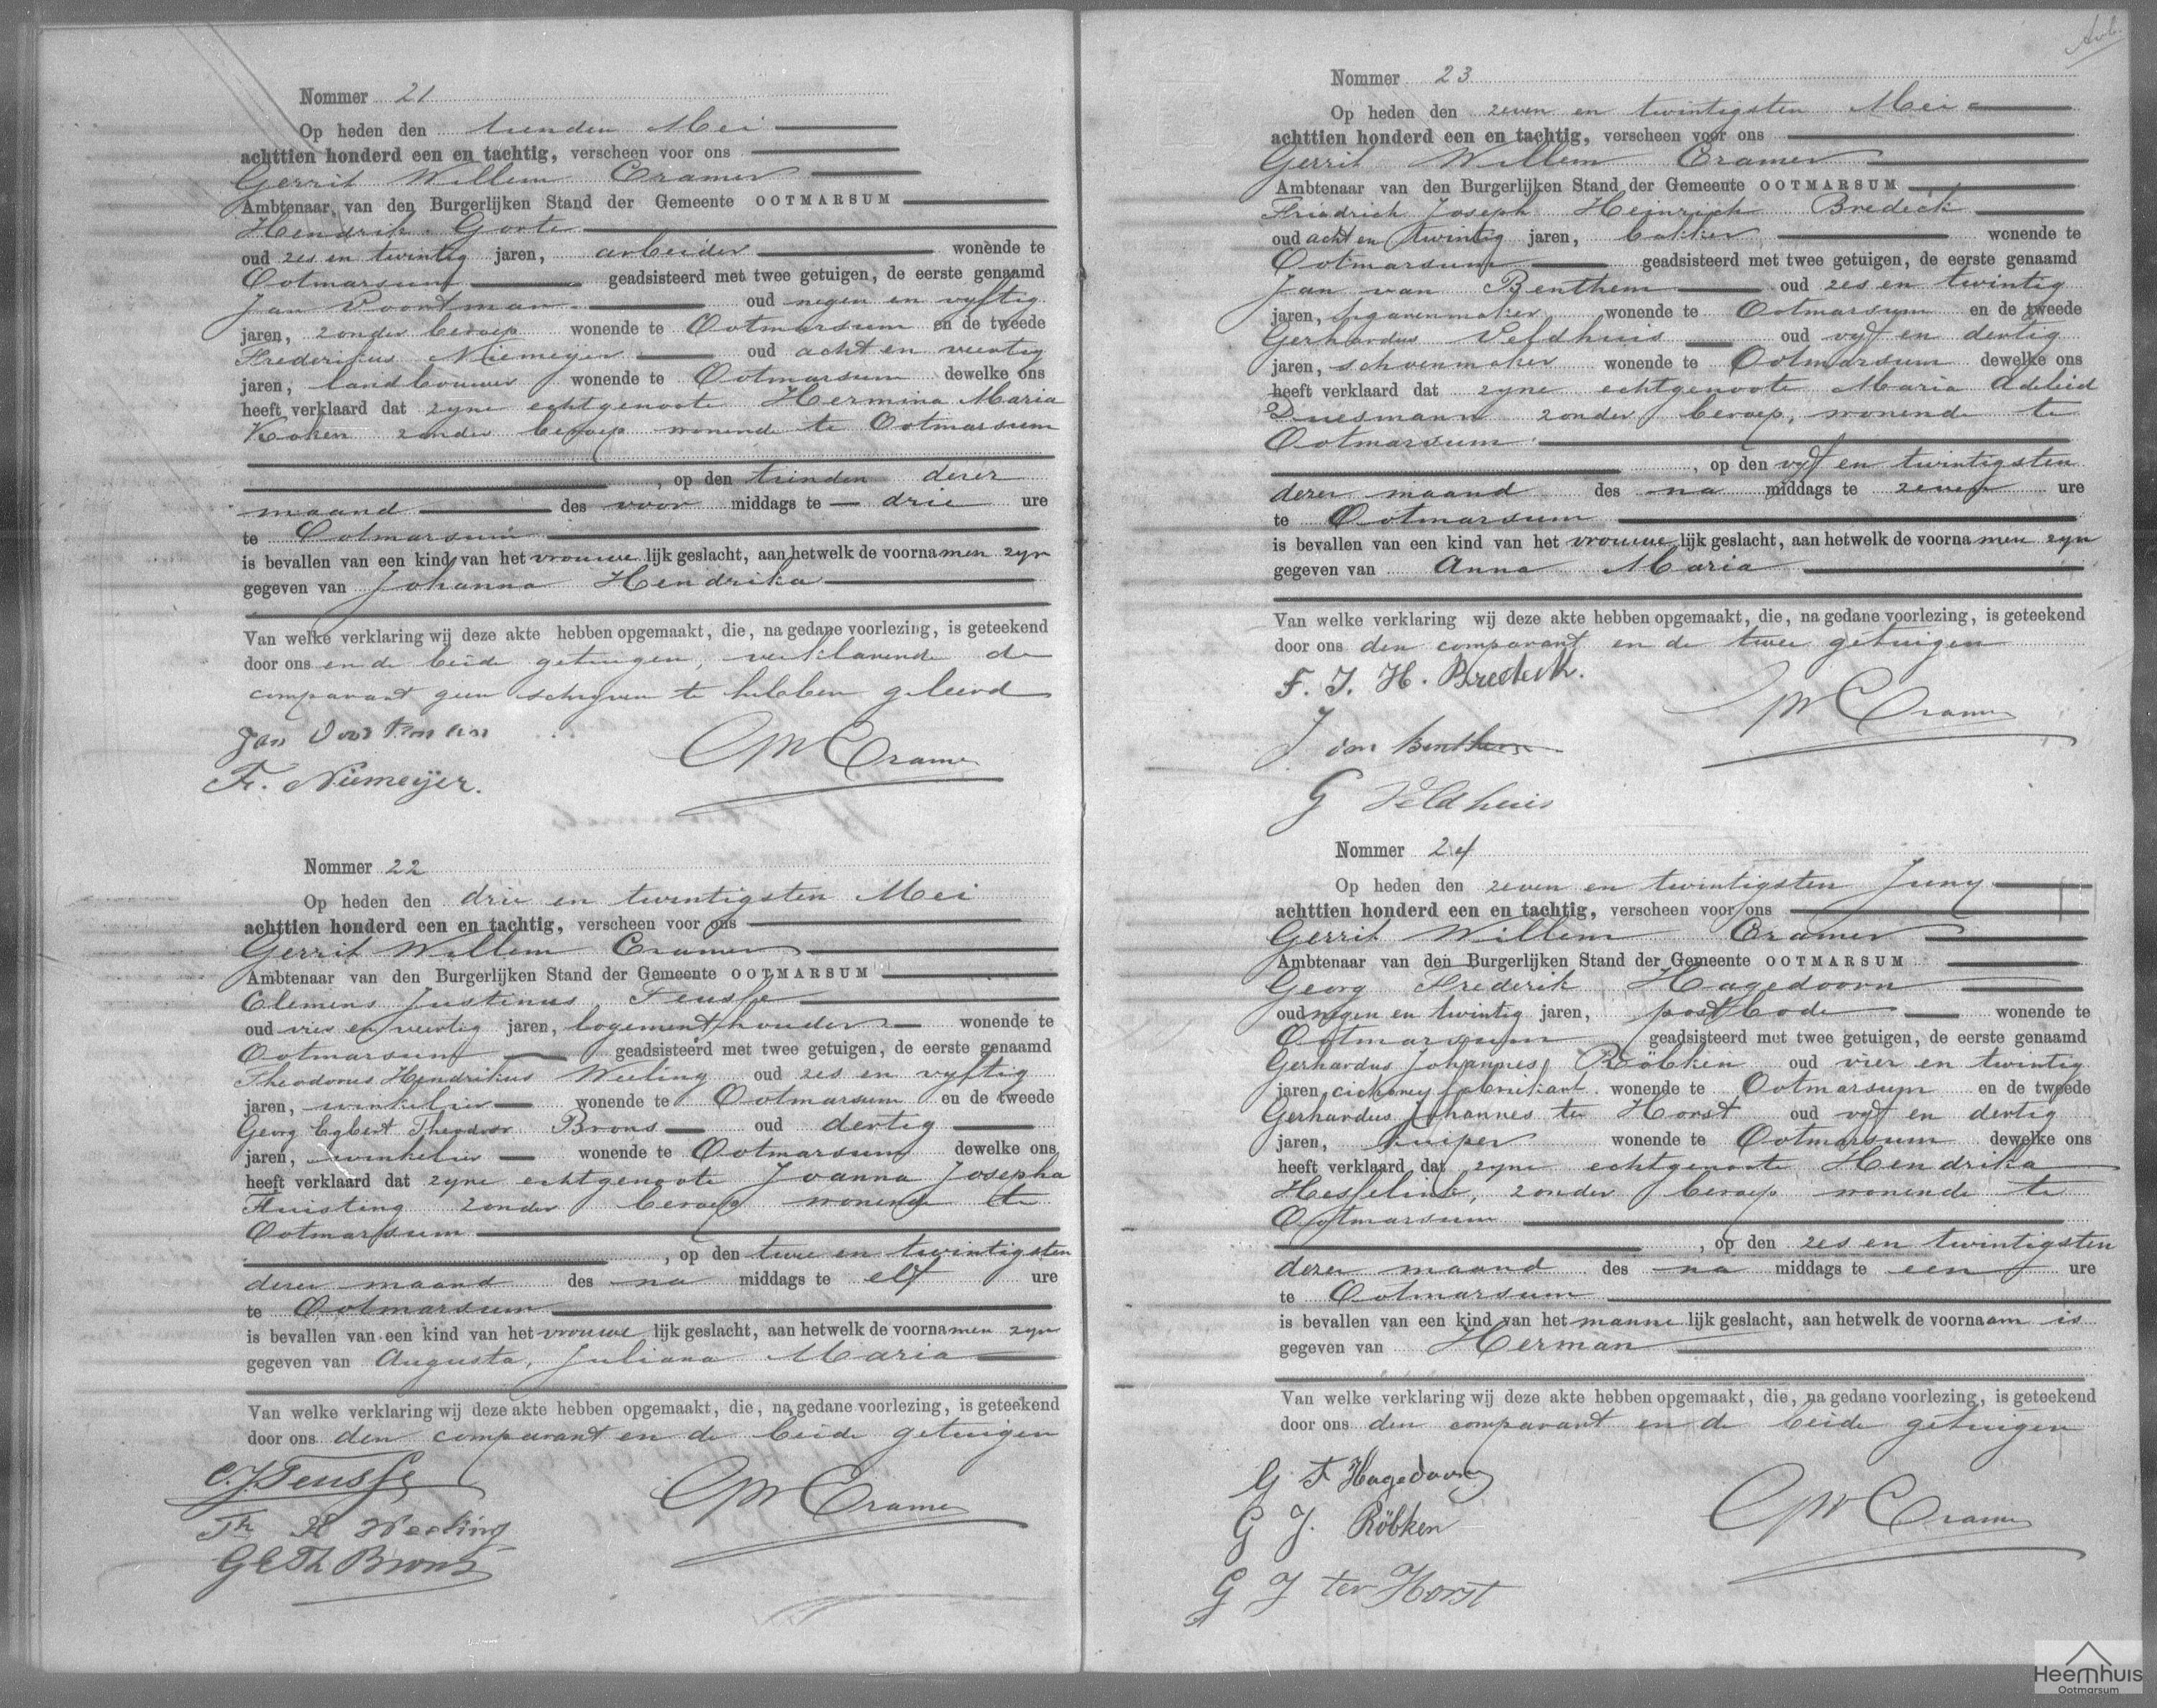 Nommer 21
Op heden den tienden Mei
achttien honderd een en tachtig, verscheen voor ons
Gerrit Willem Cramer
Ambtenaar van den Burgerlijken Stand der Gemeente OOTMARSUM
Hendrik Gorte
oud zes en twintig jaren, arbeider wonende te
Ootmarsum geadsisteerd met twee getuigen, de eerste genaamd
Jan Poortman oud negen en vyftig
jaren, zonder beroep wonende te Ootmarsum en de tweede
Frederikus Niemeyer oud acht en veertig
jaren, landbouwer wonende te Ootmarsum dewelke ons
heeft verklaard dat zyne echtgenoote Hermina Maria
Koken zonder beroep wonende te Ootmarsum
, op den tienden dezer
maand des voor middags te drie ure
te Ootmarsum
is bevallen van een kind van het vrouwe lijk geslacht, aan hetwelk de voornamen zyn
gegeven van Johanna Hendrika
Van welke verklaring wij deze akte hebben opgemaakt, die, na gedane voorlezing, is geteekend
door ons en de beide getuigen, verklarende de
comparant geen schryven te hebben geleerd
Jan
F. Niemeijer.
GW Cramer
Nommer 22
Op heden den drie en twintigsten Mei
achttien honderd een en tachtig, verscheen voor ons
Gerrit Willem Cramer
Ambtenaar van den Burgerlijken Stand der Gemeente OOTMARSUM
Clemens Justinus Teusse
oud vier en veertig jaren, logementhouder wonende te
Ootmarsum geadsisteerd met twee getuigen, de eerste genaamd
Theodorus Hendrikus Weeling oud zes en vyftig
jaren, winkelier wonende te Ootmarsum en de tweede
Georg Egbert Theodoor Brons oud dertig
jaren, winkelier wonende te Ootmarsum dewelke ons
heeft verklaard dat zyne echtgenoote Joanna Josepha
Fluisting zonder beroep wonende te
Ootmarsum
, op den twee en twintigsten
dezer maand des na middags te elf ure
te Ootmarsum
is bevallen van een kind van het vrouwe lijk geslacht, aan hetwelk de voornamen zyn
gegeven van Augusta, Juliana Maria
Van welke verklaring wij deze akte hebben opgemaakt, die, na gedane voorlezing, is geteekend
door ons den comparant en de beide getuigen
C. J Teusse
Th H Weeling
G E Th Brons
GW Cramer
Nommer 23
Op heden den zeven en twintigsten Mei
achttien honderd een en tachtig, verscheen voor ons
Gerrit Willem Cramer
Ambtenaar van den Burgerlijken Stand der Gemeente OOTMARSUM
Friedrich Joseph Heinrich Bredeck
oud acht en twintig jaren, bakker wonende te
Ootmarsum geadsisteerd met twee getuigen, de eerste genaamd
Jan van Benthem oud zes en twintig
jaren, sigarenmaker wonende te Ootmarsum en de tweede
Gerhardus Veldhuis oud vyf en dertig
jaren, schoenmaker wonende te Ootmarsum dewelke ons
heeft verklaard dat zyne echtgenoote Maria Adeleid
Duesmann zonder beroep, wonende te
Ootmarsum
, op den vyf en twintigsten
dezer maand des na middags te zeven ure
te Ootmarsum
is bevallen van een kind van het vrouwe lijk geslacht, aan hetwelk de voornamen zyn
gegeven van Anna Maria
Van welke verklaring wij deze akte hebben opgemaakt, die, na gedane voorlezing, is geteekend
door ons den comparant en de twee getuigen
F. J. H. Bredeck.
J van Benthem
G Veldhuis
GW Cramer
Nommer 24
Op heden den zeven en twintigsten Juny
achttien honderd een en tachtig, verscheen voor ons
Gerrit Willem Cramer
Ambtenaar van den Burgerlijken Stand der Gemeente OOTMARSUM
Georg Frederik Hagedoorn
oud negen en twintig jaren, postbode wonende te
Ootmarsum geadsisteerd met twee getuigen, de eerste genaamd
Gerhardus Johannes Röbken oud vier en twintig
jaren, cichorey fabrikant wonende te Ootmarsum en de tweede
Gerhardus Johannes ter Horst oud vyf en dertig
jaren, kuiper wonende te Ootmarsum dewelke ons
heeft verklaard dat zyne echtgenoote Hendrika
Hesselink, zonder beroep wonende te
Ootmarsum
, op den zes en twintigsten
dezer maand des na middags te een ure
te Ootmarsum
is bevallen van een kind van het manne lijk geslacht, aan hetwelk de voornaam is
gegeven van Herman
Van welke verklaring wij deze akte hebben opgemaakt, die, na gedane voorlezing, is geteekend
door ons den comparant en de beide getuigen
G F Hagedoorn
G J. Röbken
G J ter Horst
GW Cramer
Heemhuis
Ootmarsum